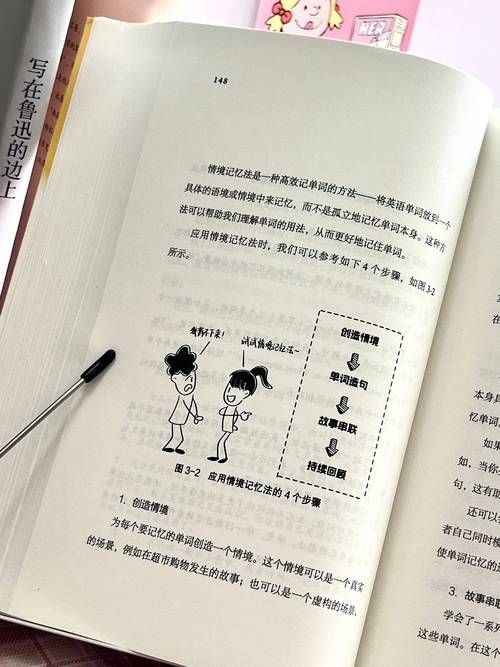 写在鲁迅的边上
148
情境记忆法是一种高效记单词的方法——将英语单词放到一个
具体的语境或情境中来记忆,而不是孤立地记忆单词本身。这种方
法可以帮助我们理解单词的用法,从而更好地记住单词。
应用情境记忆法时,我们可以参考如下4个步骤,如图3-2
所示。
我背不下来!
试试情境记忆法~
创造情境
单词造句
故事串联
持续回顾
图3-2 应用情境记忆法的4个步骤
1. 创造情境
为每个要记忆的单词创造一个情境。这个情境可以是一个真实
的场景,例如在超市购物发生的故事;也可以是一个虚构的场景,
在
本身具
忆单词。
如果
如,当你
句,这有助
还可以
者自己同时模
使单词记忆的过
3. 故事串联
学会了一系列
这些单词。在这个